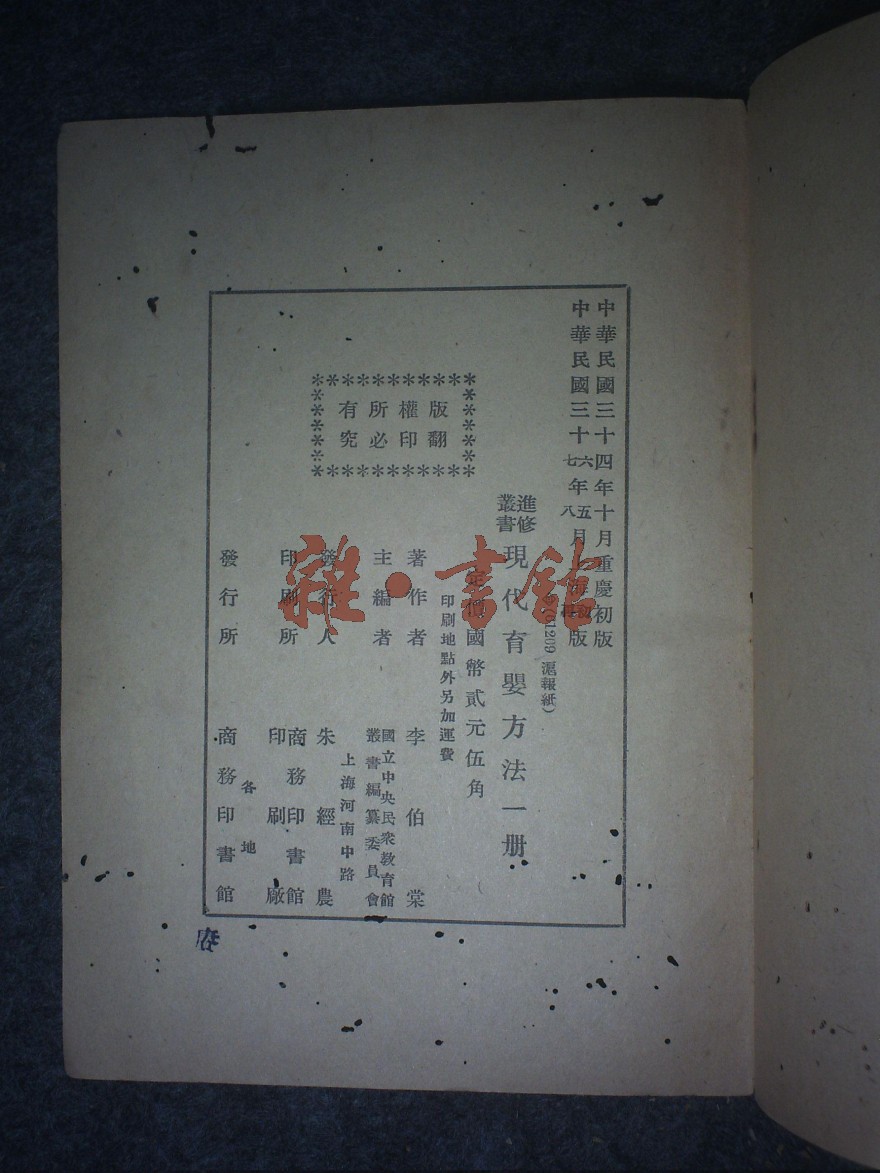 中華民國三十四年十月重慶初版
中華民國三十六年五月上海初版
七八再
(61209 滬報紙)
進修叢書
現代育嬰方法一册
定價國幣貳元伍角
印刷地點外另加運費
著作者 李伯棠
主編者 國立中央民衆教育館
叢書編纂委員會
上海河南中路
發行人 朱經農
印刷所 商務印書館
印刷廠
各地
發行所 商務印書館
版權所有
翻印必究
雜·書館